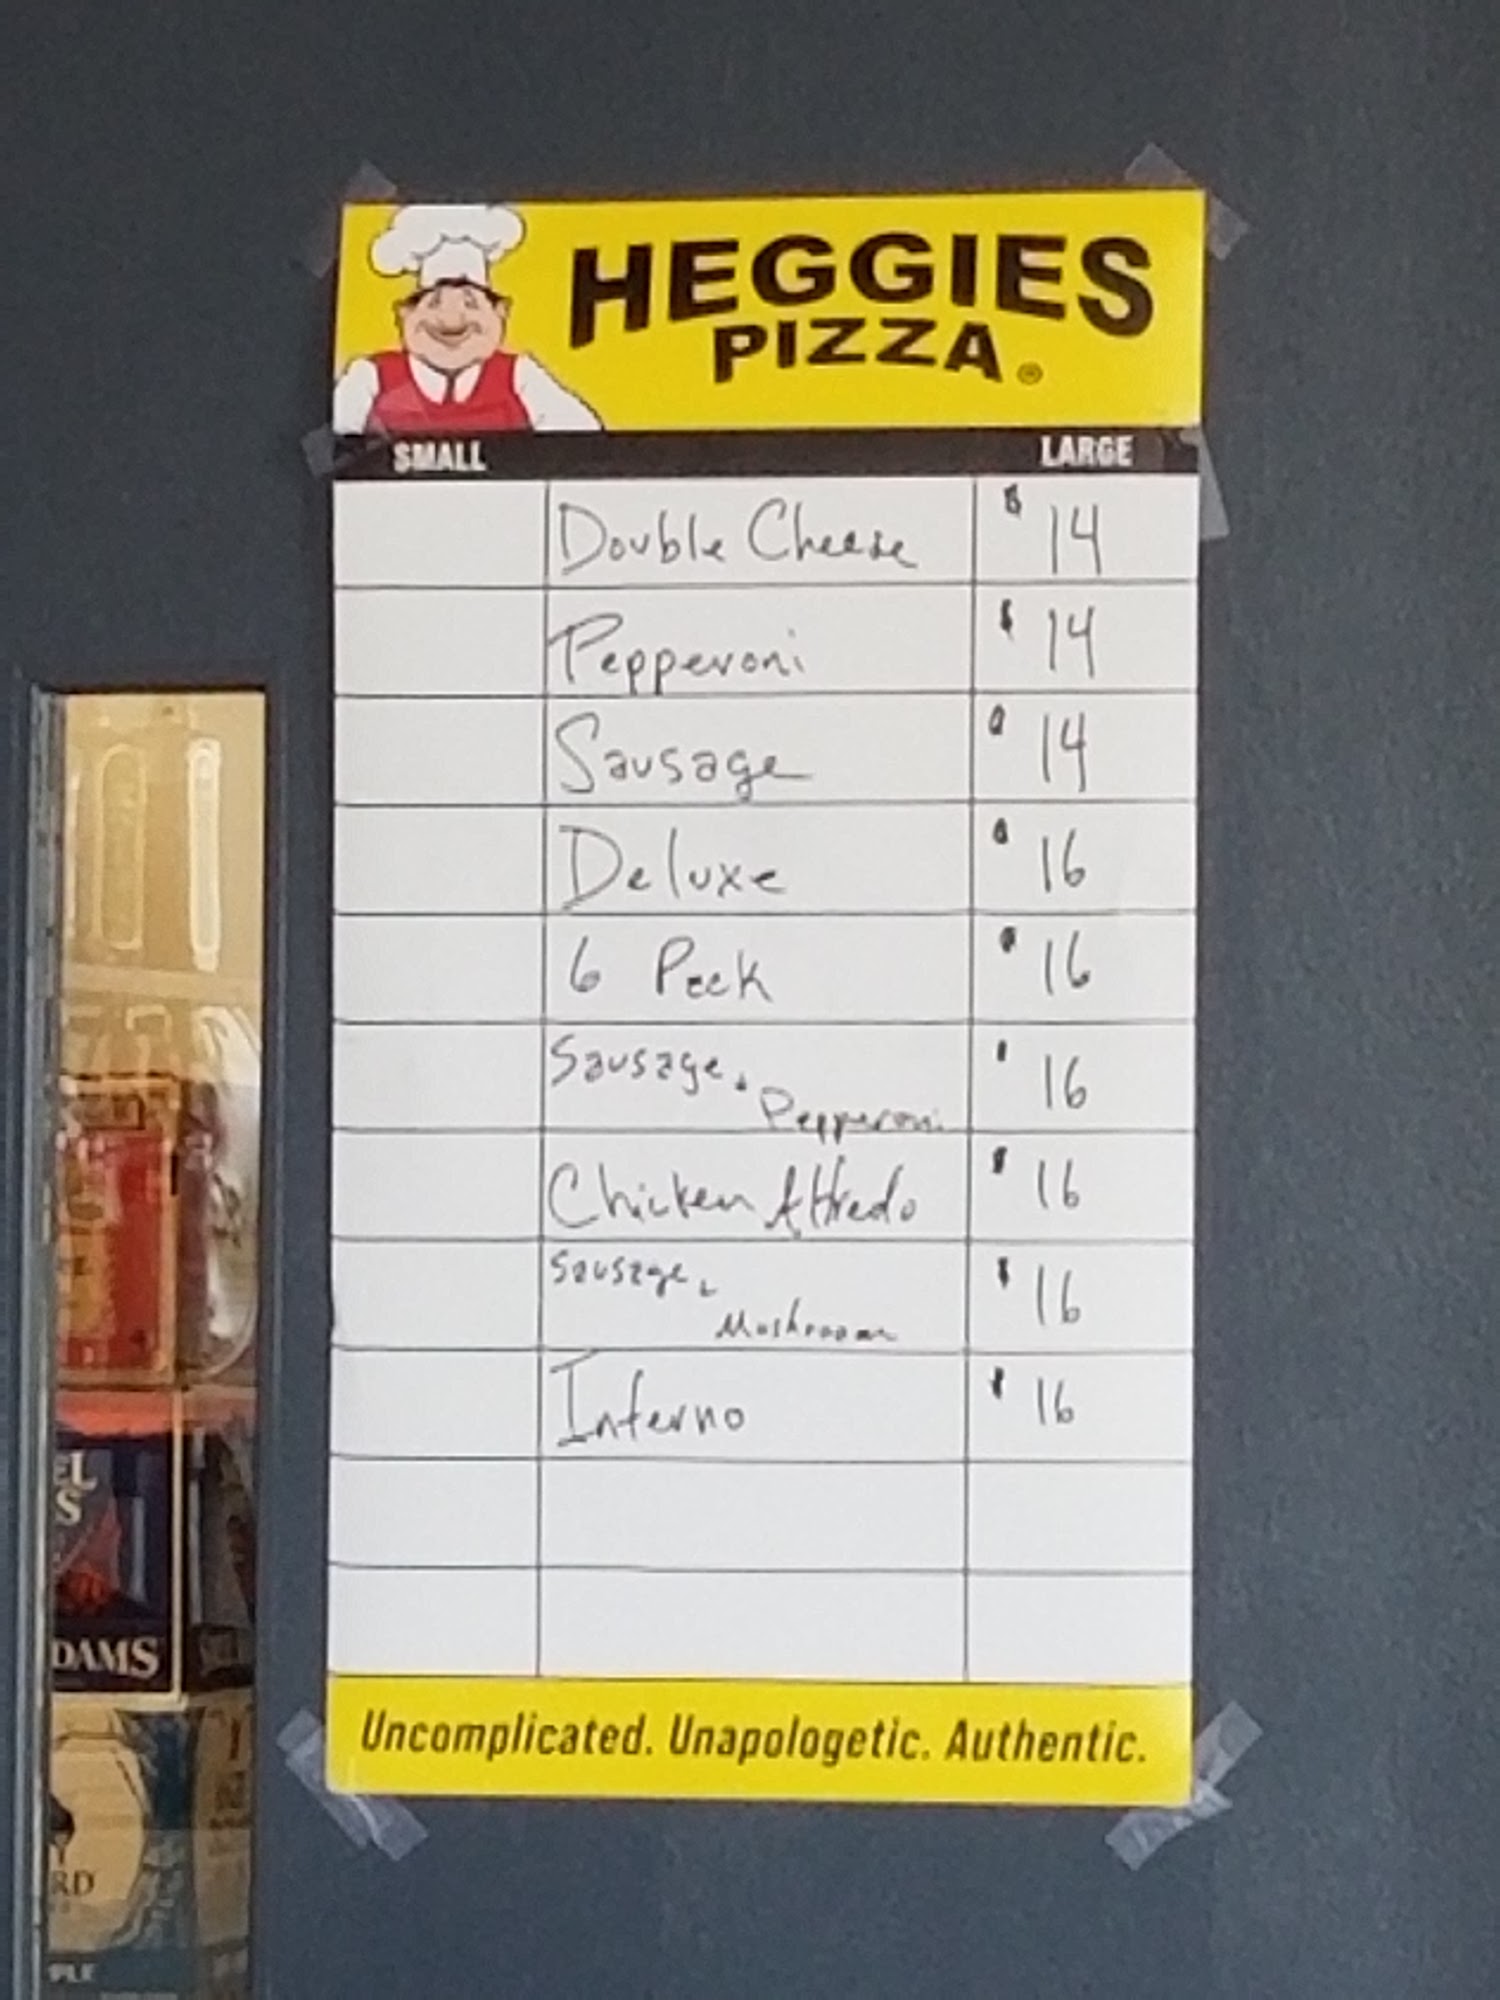 HEGGIES
PIZZA ®
SMALL LARGE
Double Cheese $ 14
Pepperoni $ 14
Sausage $ 14
Deluxe $ 16
6 Pack $ 16
Sausage &
Pepperoni $ 16
Chicken Alfredo $ 16
Sausage &
Mushroom $ 16
Inferno $ 16
Uncomplicated. Unapologetic. Authentic.
EL
S
DAMS
Y
RD
PLE